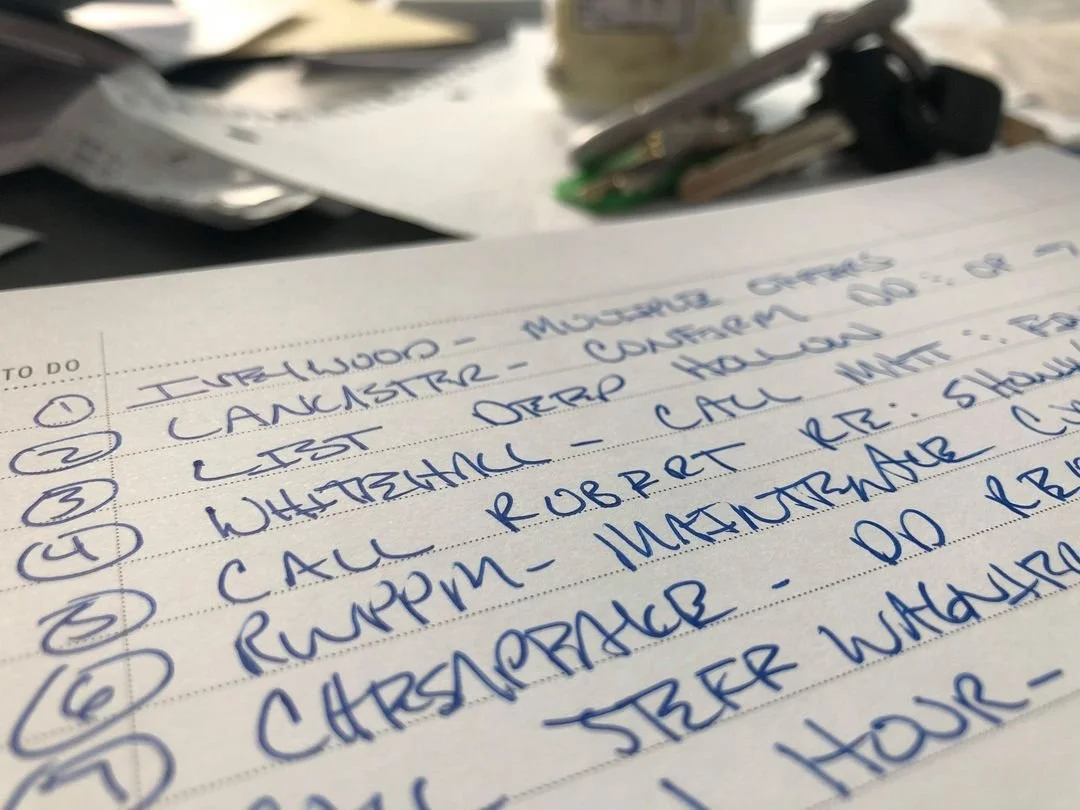 TO DO
① IVEYWOOD - MULTIPLE OFFERS
② LANCASTER - CONFIRM DD : OP →
③ LIST DEEP HOLLOW
④ WHITEHALL - CALL MATT :
⑤ CALL ROBERT RE:
⑥ RWPPM - MAINTENANCE
⑦ CHESAPEAKE - DD
CALL JEFF
1 HOUR -